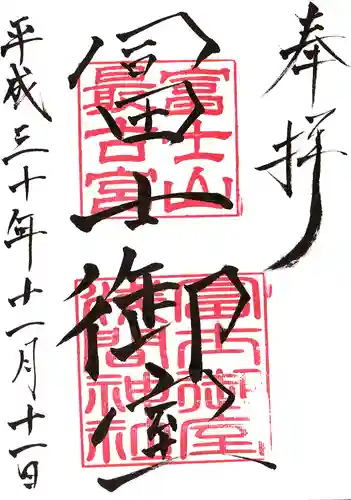 奉拝
冨士御室
富士山
最古宮
冨士御室
淺間神社
平成三十年十一月十一日